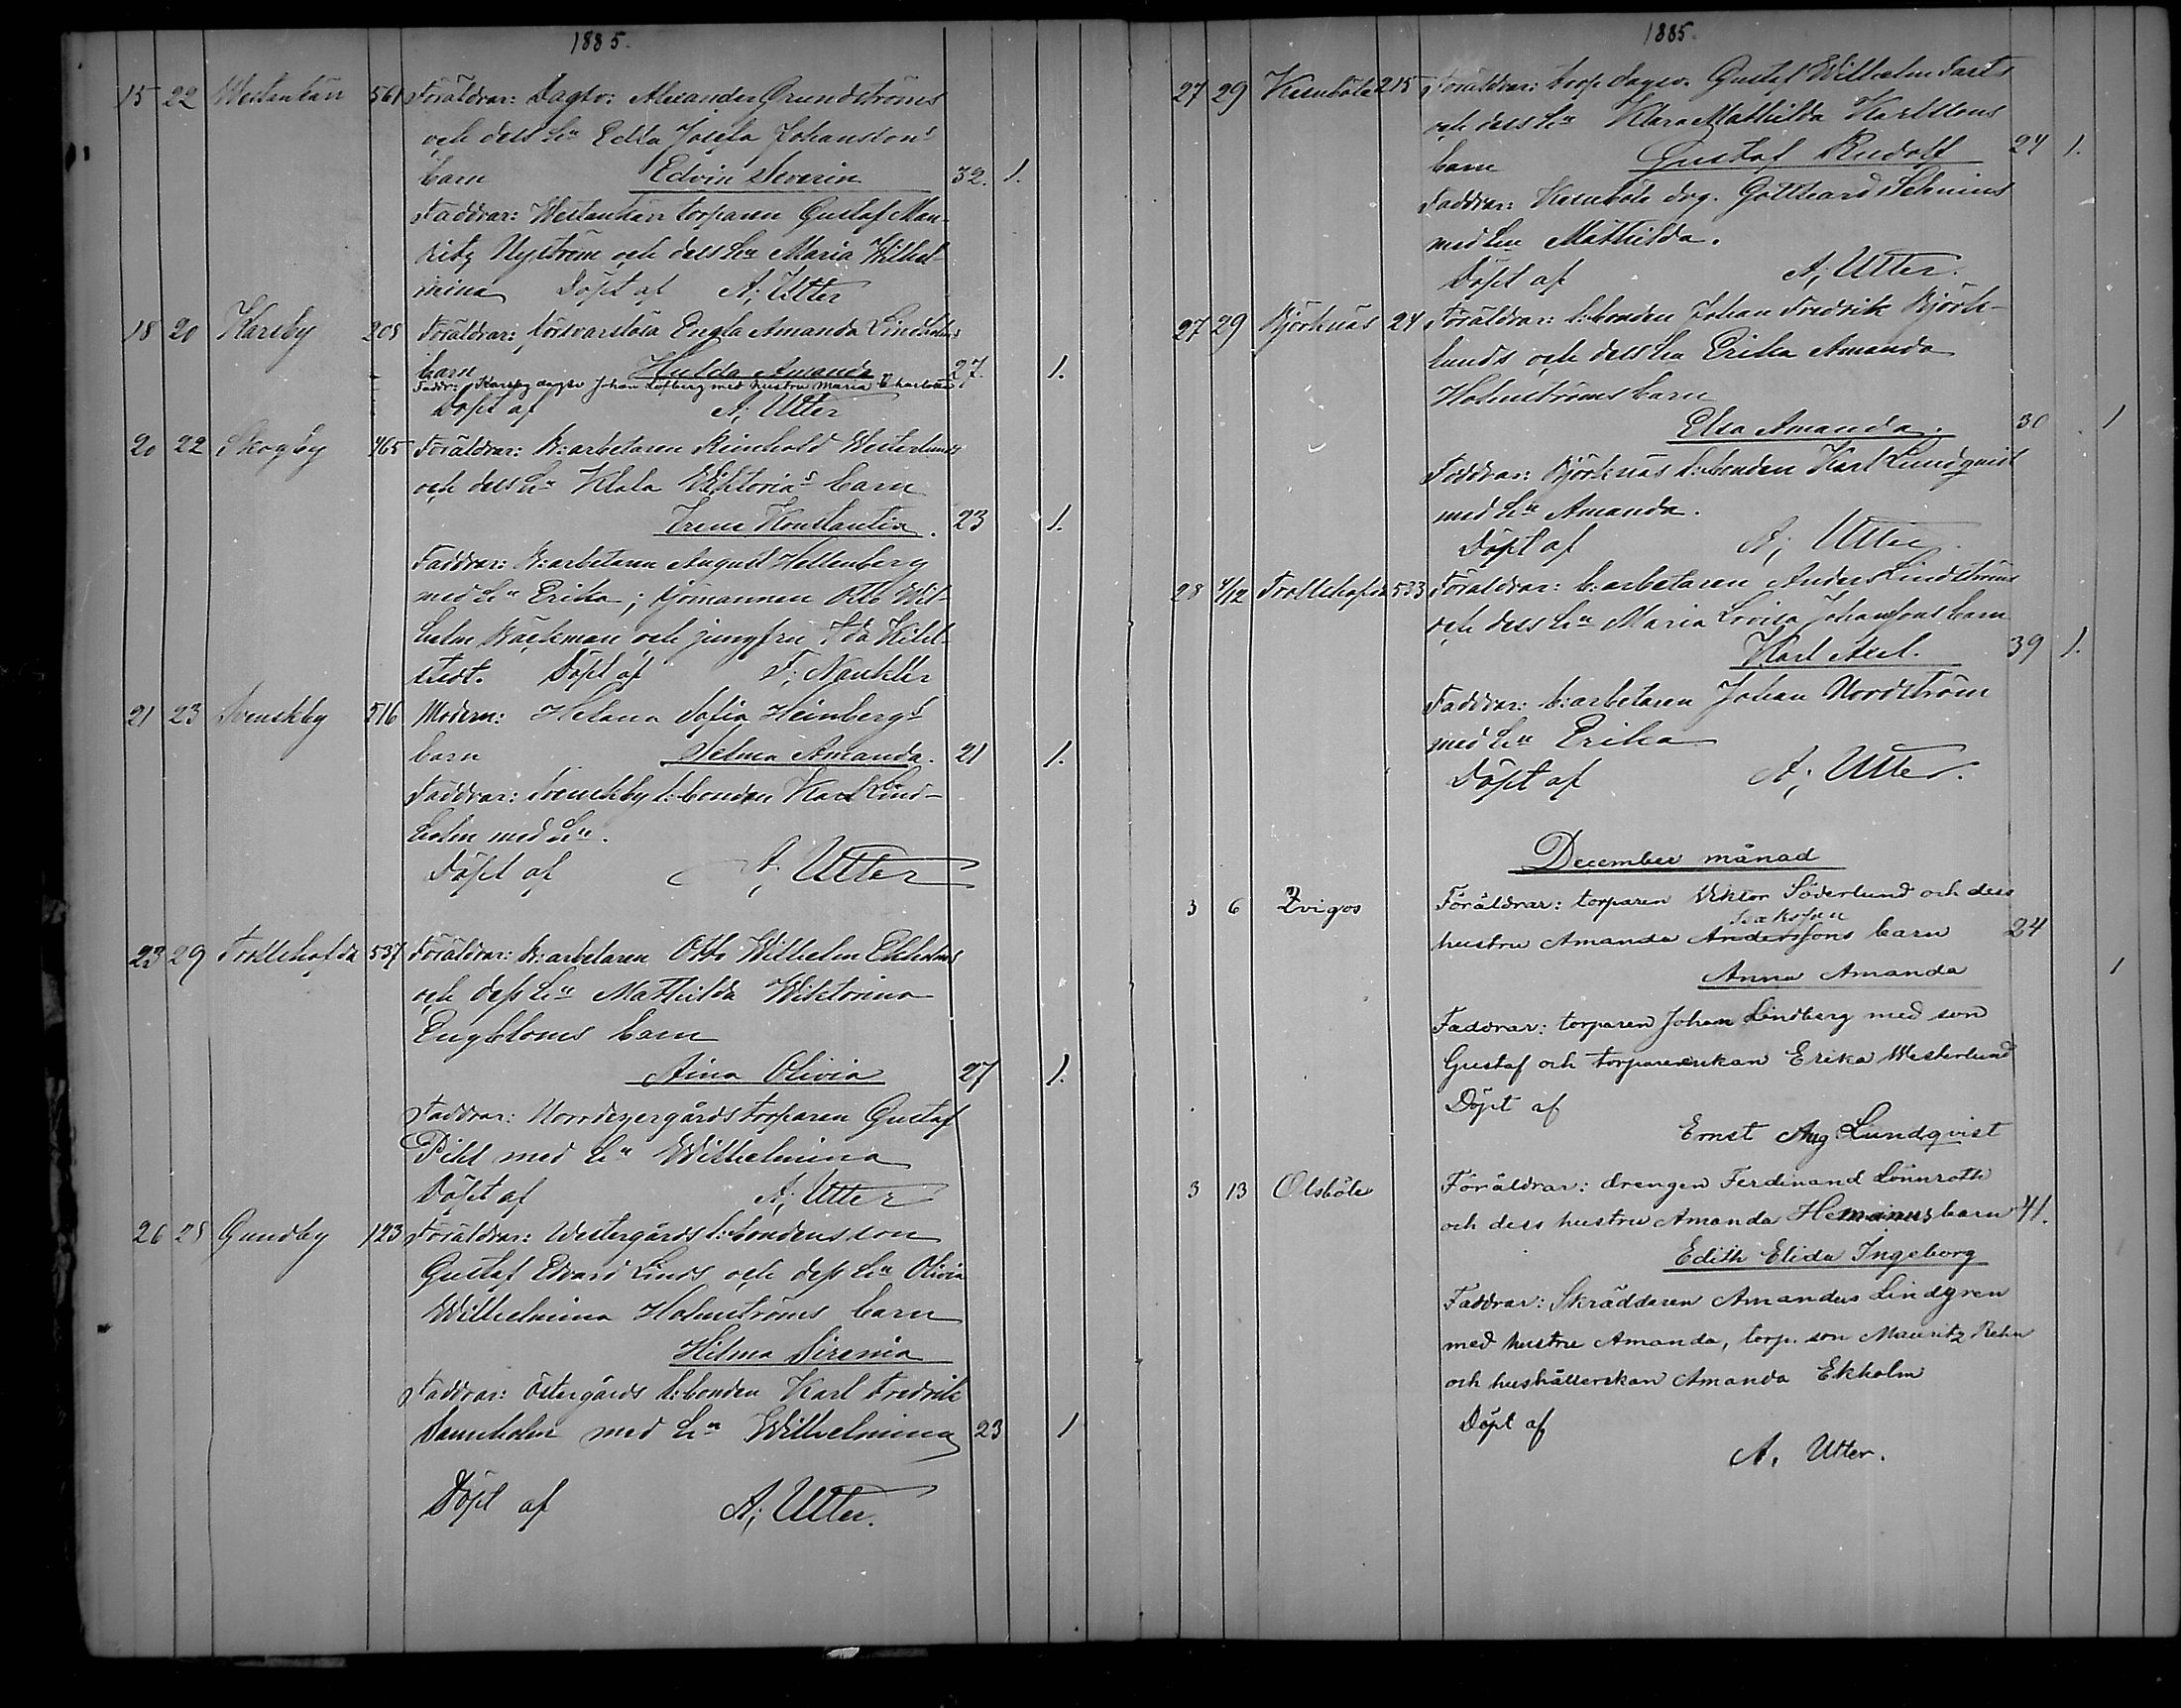 1885.
15 22 Westankärr 561 Föräldrar: Dagsv: Alexander Grundströms
och dess h:u Edla Josefa Johanssons
barn Edvin Severin 32. 1.
Faddrar: Westankärr torparen Gustaf Mau-
ritz Nyström och dess h:u Maria Wilhel
mina Döpt af A; Utter
18 20 Karsby 208 Föräldrar: försvarslösa Engla Amanda Lindholms
barn Hulda Amanda 27. 1.
Faddr: Karsby dagsv Johan Löfberg med hustru Maria Charlotta
Döpt af A; Utter
20 22 Skogby 465 Föräldrar: B:arbetaren Reinhold Westerlunds
och dess h:u Klara Wiktorias barn
Irene Konstantia. 23 1.
Faddrar: B:arbetaren August Hellenberg
med h:u Erika; sjömannen Otto Wil-
helm Bäckman och jungfru Ida
stedt. Döpt af F; Naukler
21 23 Svenskby 516 Modern: Helena Sofia Heinbergs
barn Selma Amanda. 21 1.
Faddrar: Svenskby l:bonden Karl Lind-
holm med h:u.
Döpt af A; Utter
23 29 Trollshofda 537 Föräldrar: B:arbetaren Otto Wilhelm Ekholms
och dess h:u Mathilda Wiktorina
Engbloms barn
Aina Olivia 27 1.
Faddrar: Norrdegergårds torparen Gustaf
Pihl med h:u Wilhelmina
Döpt af A; Utter
26 28 Gundby 123 Föräldrar: Westergårds l:bondens son
Gustaf Edvard Linds och dess h:u Olivia
Wilhelmina Holmströms barn
Hilma Sirenia
Faddrar: Östergårds l:bonden Karl Fredrik
Danholm med h:u Wilhelmina 23 1
Döpt af A; Utter.
1885.
27 29 215 Föräldrar: torp.dagsv. Gustaf Wilhelm Fasts
och dess h:u Klara Mathilda Karlssons
barn Gustaf Rudolf 24 1.
Faddrar: drg. Gotthard Selenius
med h:u Mathilda.
Döpt af A; Utter.
27 29 Björknäs 24 Föräldrar: l:bonden Johan Fredrik Björk-
lunds och dess h:u Erika Amanda
Holmströms barn
Elsa Amanda. 30 1
Faddrar: Björknäs l:bonden Karl Lundqvist
med h:u Amanda.
Döpt af A; Utter
28 4/12 Trollshofda 533 Föräldrar: b:arbetaren Anders Lindströms
och dess h:u Maria Lovisa Johanssons barn
Karl Axel. 39 1.
Faddrar: b:arbetaren Johan Nordström
med h:u Erika
Döpt af A; Utter.
December månad
3 6 Zvigos Föräldrar: torparen Viktor Söderlund och dess
Isaksson
hustru Amanda Anderssons barn 24
Anna Amanda 1
Faddrar: torparen Johan Lindberg med son
Gustaf och torparenkan Erika Westerlund
Döpt af
Ernst Aug Lundqvist
3 13 Olsböle Föräldrar: drengen Ferdinand Lönnroth
och dess hustru Amanda barn 41.
Edith Elida Ingeborg
Faddrar: Skräddaren Amandus Lindgren
med hustru Amanda, torp. son Mauritz Rehn
och hushållerskan Amanda Ekholm
Döpt af
A. Utter.